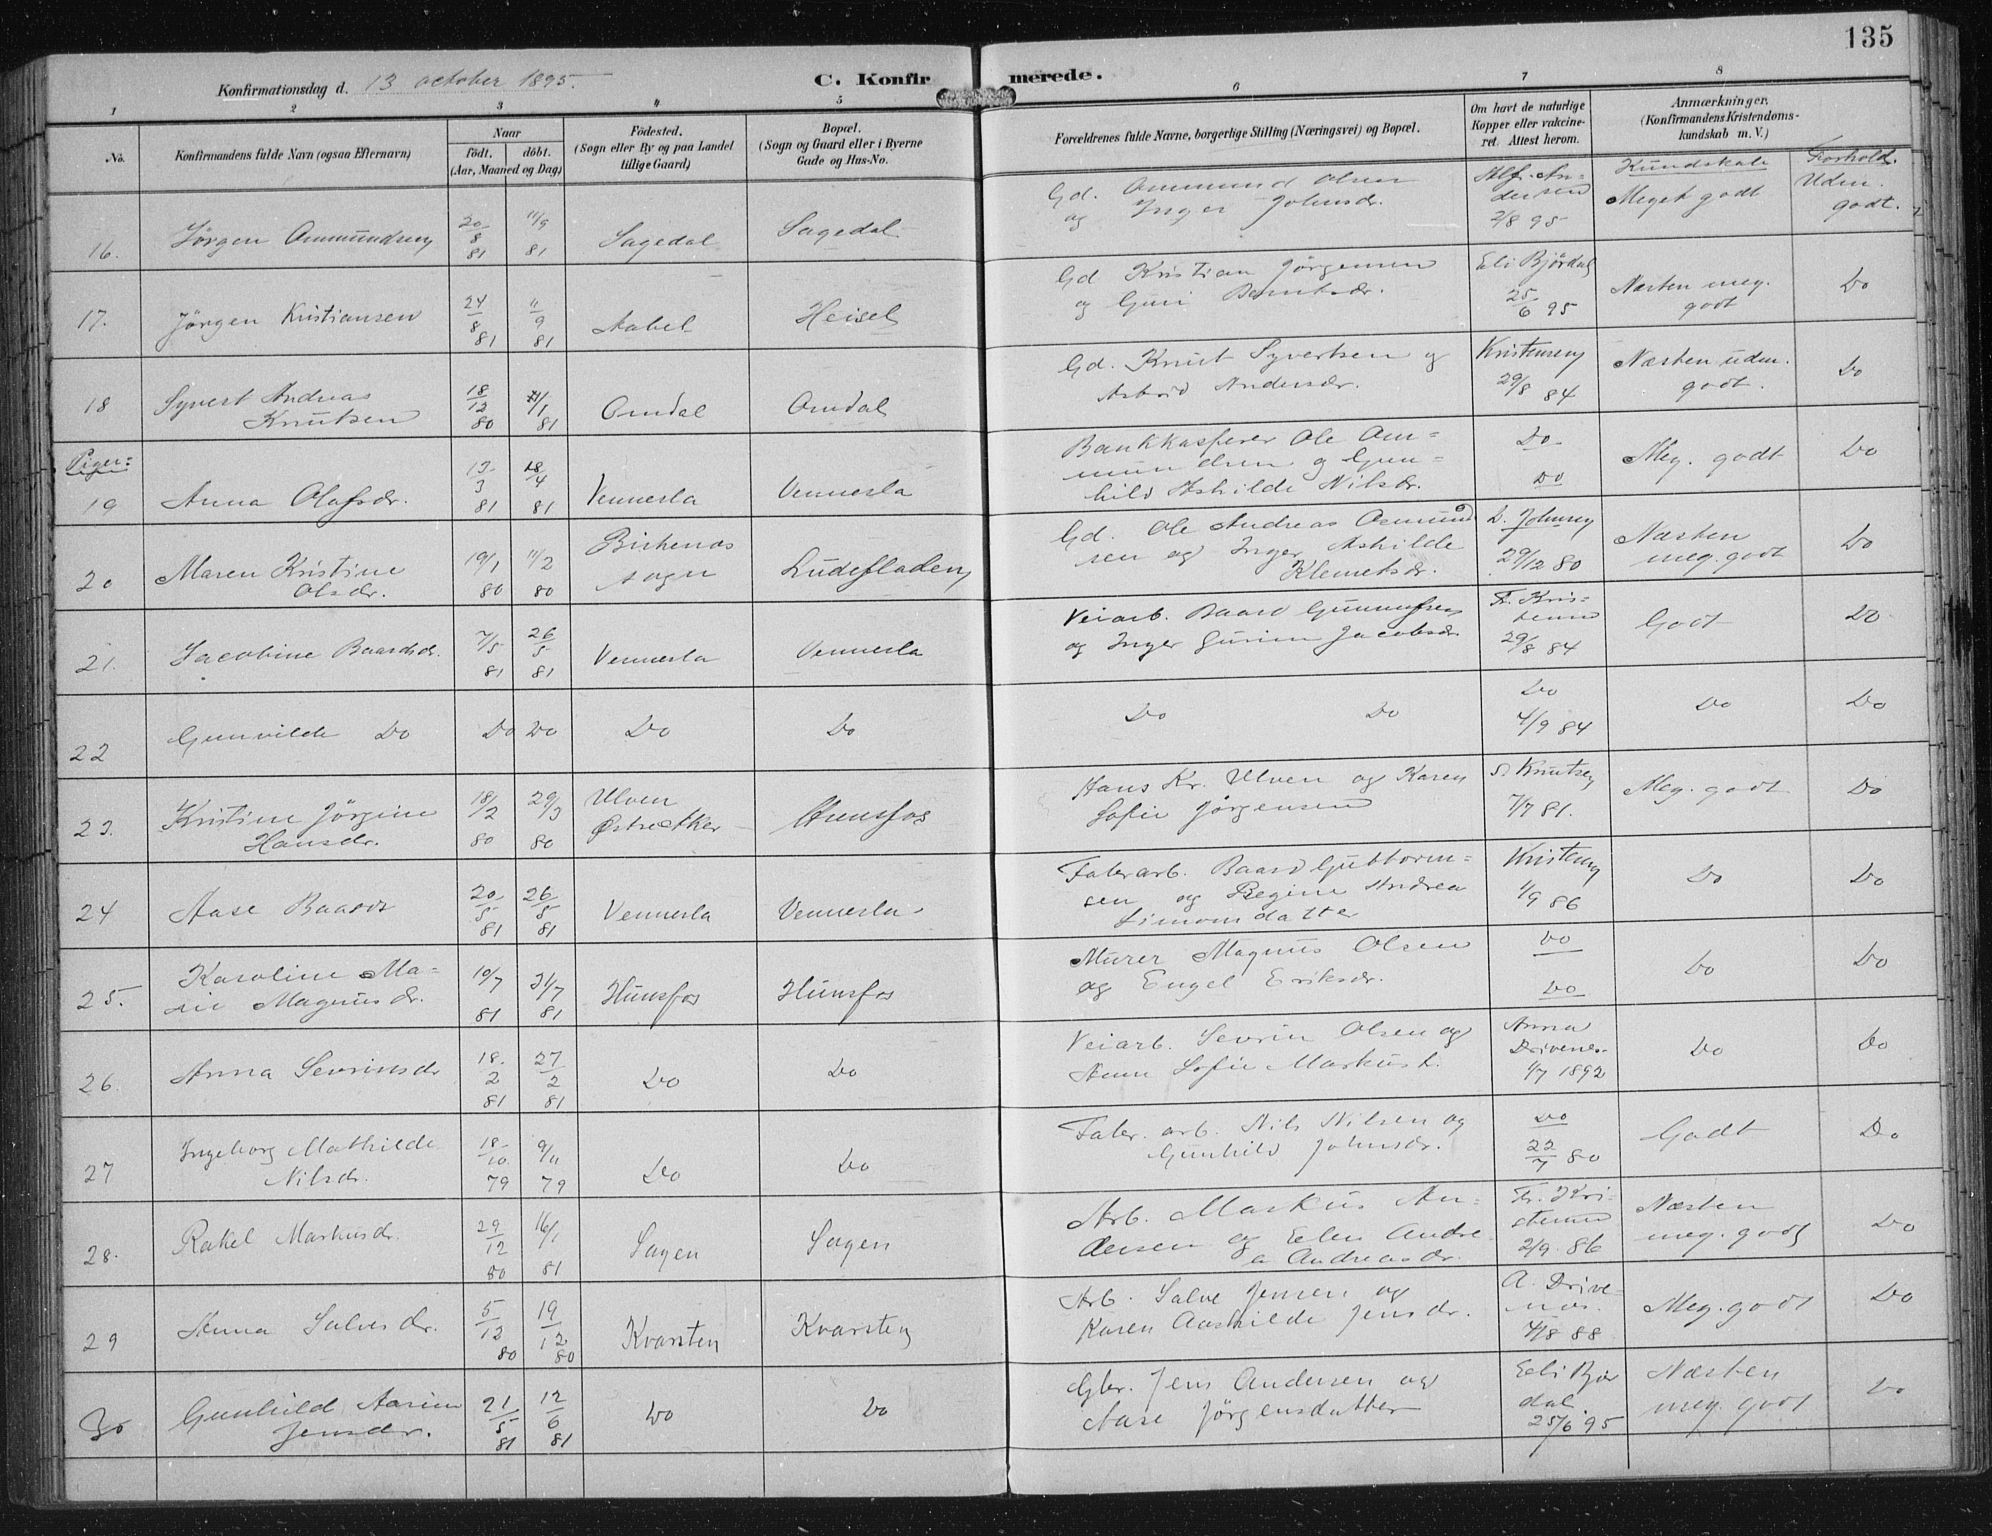 135
Konfirmationsdag d. 13 october 1895.
C. Konfirmerede.
1 2 3 4 5 6 7 8
No.
Konfirmandens fulde Navn (ogsaa Efternavn)
Naar
födt. döbt.
(Aar, Maaned og Dag)
Födested.
(Sogn eller By og paa Landet
tillige Gaard)
Bopæl.
(Sogn og Gaard eller i Byerne
Gade og Hus-No.
Forældrenes fulde Navne, borgerlige Stilling (Næringsvei) og Bopæl.
Om havt de naturlige
Kopper eller vakcine-
ret. Attest herom.
Anmærkninger.
(Konfirmandens Kristendoms-
kundskab m. V.)
Kundskab Forhold.
16. Jörgen Ommundsen 20/8 81 11/9 81 Sagedal Sagedal
Gd. Ommund Olsen
og Inger Johnsdr.
Alf. An-
dersen
2/8 95
Meget godt
Uden.
godt.
17. Jörgen Kristiansen 24/8 81 11/9 81 Aabel Heisel
Gd Kristian Jörgensen
og Guri Berntsdr.
Eli Björdal
25/6 95
Næsten meg.
godt
Do
18 Syvert Andreas
Knutsen 18/12 80 /1 81 Omdal Omdal
Gd. Knut Syvertsen og
Astrid Andersdr.
Kristensen
29/8 84
Næsten uden.
godt.
Do
Piger:
19 Anna Olafsdr. 13/3 81 18/4 81 Vennesla Vennesla
Bankkasserer Ole Om=
mundsen og Gun=
hild Ashilde Nilsdr.
Do
Do
Meg. godt
Do
20 Maren Kristine
Olsdr. 19/1 80 11/2 80 Birkenæs
sogn Ludefladen
Gd. Ole Andreas Osmund
sen og Inger Ashilde
Klemetsdr.
D. Johnsen
29/12 80
Næsten
meg. godt
Do
21. Jacobine Baardsdr. 7/5 81 26/5 81 Vennesla Vennesla
Veiarb. Baard Gunnufsen
og Inger Gurine Jacobsdr
Fr. Kris=
tensen
29/8 84
Godt
Do
22 Gunvilde Do Do Do Do Do
Do Do
Do
4/9 84
Do
Do
23. Kristine Jörgine
Hansdr. 18/2 80 29/3 80 Ulven
Østre Aker Hunsfos
Hans Kr. Ulven og Karen
Sofie Jörgensen
S. Knutsen
7/7 81.
Meg. godt
Do
24 Aase Baards 20/5 81 26/5 81 Vennesla Vennesla
Faberarb. Baard Guttorm=
sen og Regine Andrea
Simonsdatter
Kristensen
1/9 86
Do
Do
25. Karoline Ma-
rie Magnusdr. 10/7 81 31/7 81 Hunsfos Hunsfos
Murer Magnus Olsen
og Engel Eriksdr.
Do
Do
Do
Do
26. Anna Sevrinsdr 18/2 81 27/2 81 Do Do
Veiarb. Sevrin Olsen og
Anne Sofie Markusd.
Anna
Drivenes
1/7 1892
Do
Do
27 Ingeborg Mathilde
Nilsdr. 18/10 79 9/11 79 Do Do
Faber. arb. Nils Nilsen og
Gunhild Johnsdr.
Do
22/7 80
Godt
Do
28. Rakel Markusdr. 29/12 80 16/1 81 Sagen Sagen
Arb. Markus An-
dersen og Elen Andre
a Andreasdr.
Fr. Kri-
stensen
2/9. 86
Næsten
meg. godt
Do
29 Anna Salvesdr. 5/12 80 19/12 80 Kvarsten Kvarsten
Arb. Salve Jensen og
Karen Aashilde Jensdr.
A. Drive-
næs.
4/8 88
Meg. godt
Do
30 Gunhild Aasine
Jensdr. 21/5 81 12/6 81 Do Do
Gbr. Jens Andersen og
Aase Jörgensdatter
Eli Björ
dal
25/6 95
Næsten
meg. godt
Do